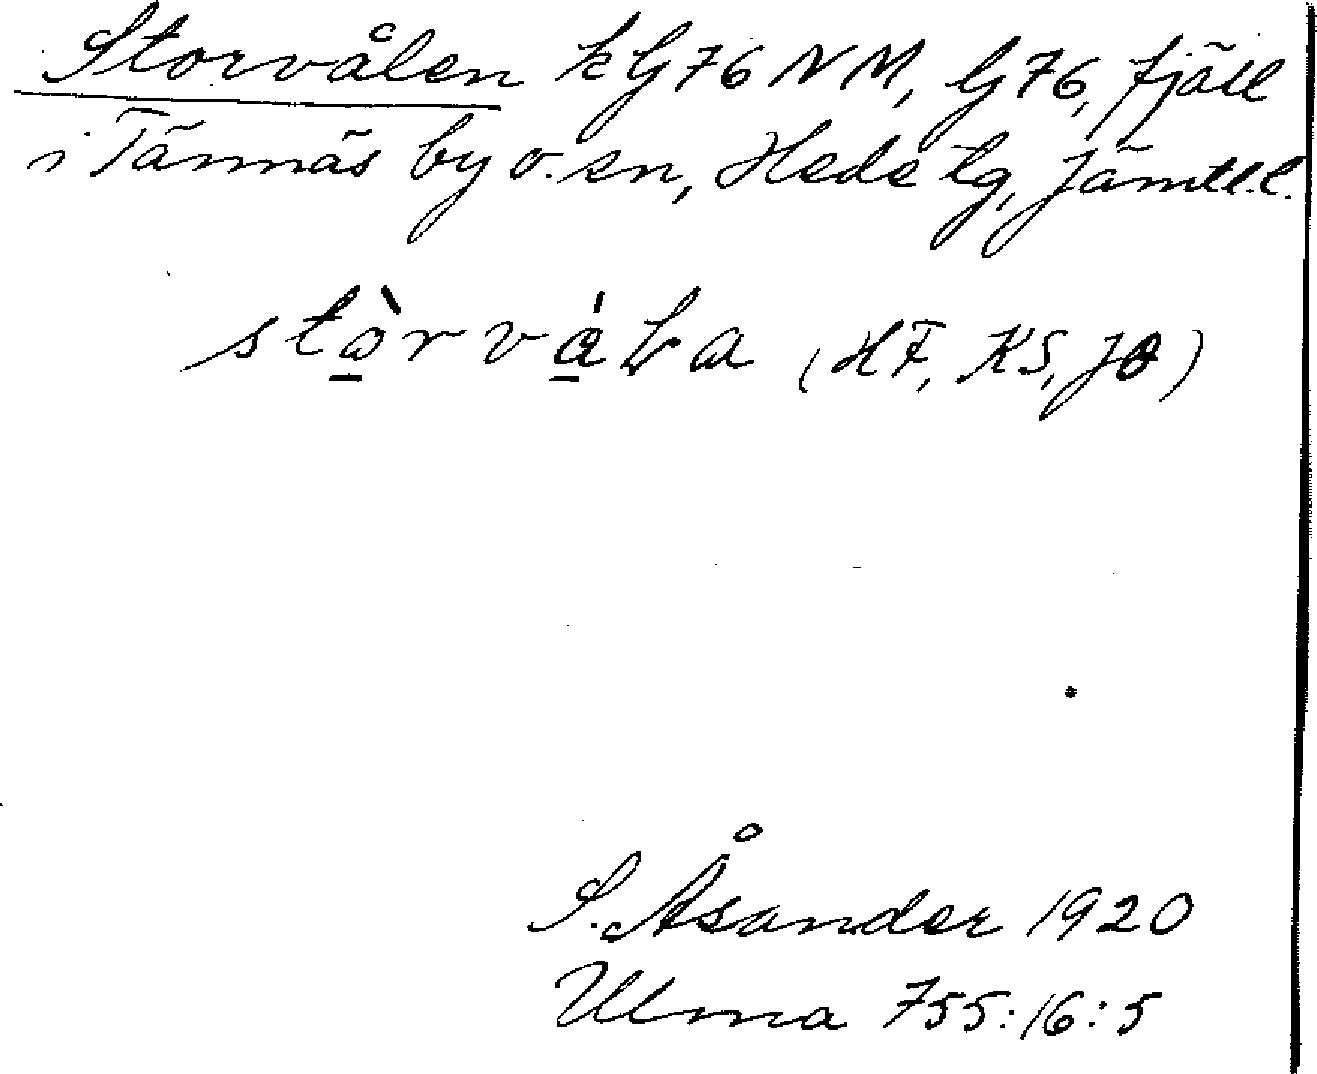 Storvålen kG76NM, G76, fjäll
i Tännäs by o. sn, Hede tg, Jämtl.l.
stòrváLa (HF, KS, JØ)
S. Åsander 1920
Ulma 755:16:5